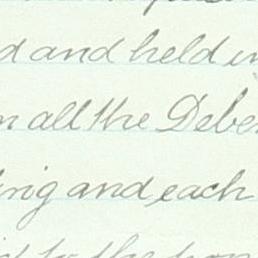 d and held in
all the Deben
ing and each
to the